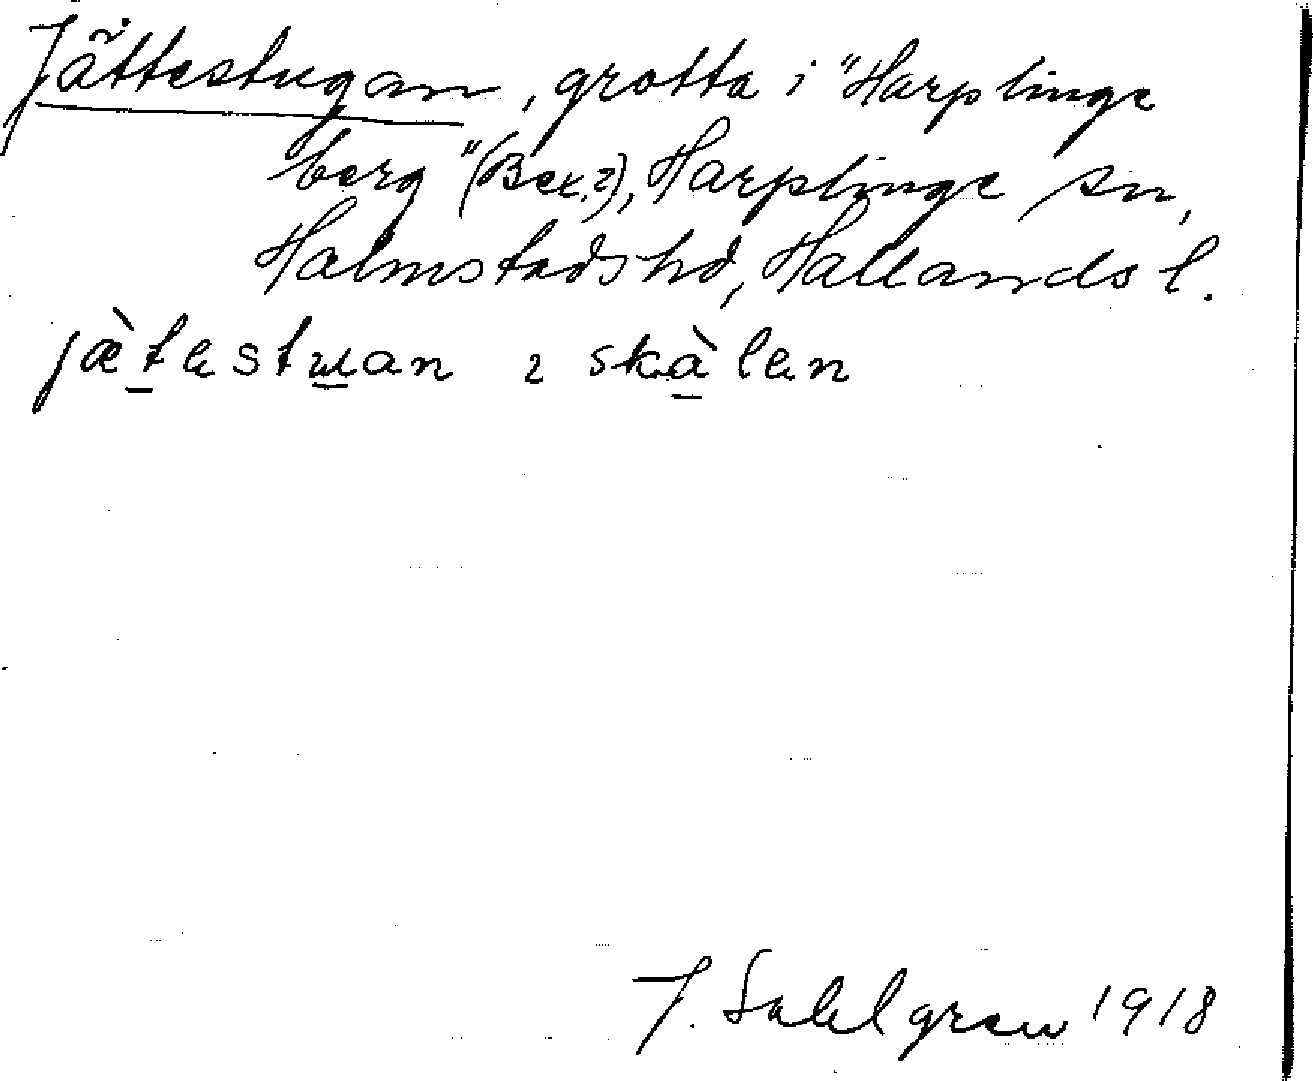 Jättestugan, grotta i "Harplinge
berg" (Bex.?), Harplinge sn,
Halmstads hd, Hallands l.
jæ̀testuan ɩ skàlen
J. Sahlgren 1918